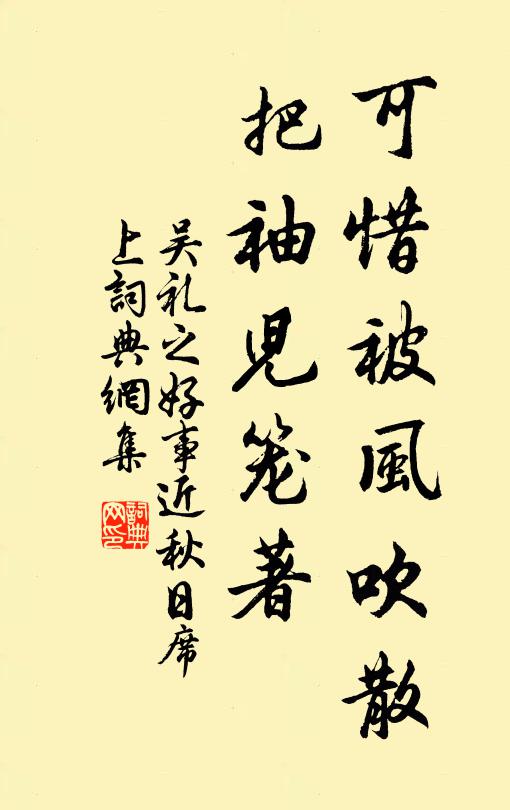 可惜被風吹散
把袖兒笼著
吴礼之好事近秋日席
上詞典網集
詞典
网印